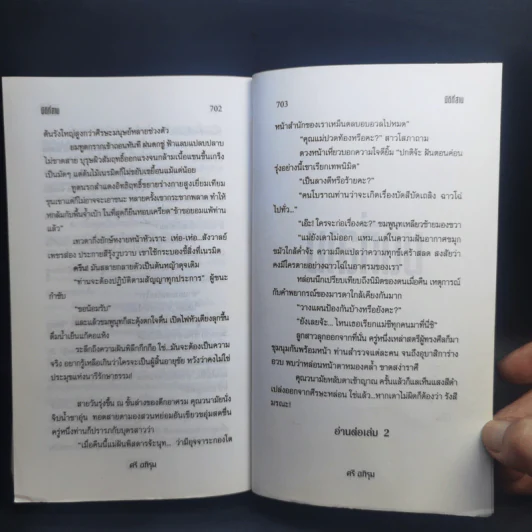 มิติที่สาม
702
ต้นรังใหญ่สูงกว่าศีรษะมนุษย์หลายช่วงตัว
ยมทูตกรากเข้าถอนทันที ฝนตกซู่ ฟ้าแลบแปลบปลาบ
ไม่ขาดสาย บุรุษผิวสัมฤทธิ์ออกแรงจนกล้ามเนื้อแขนขึ้นเกร็ง
เป็นมัดๆ แต่ต้นไม้เนรมิตก็ไม่ขยับเขยื้อนแม้แต่น้อย
ทูตนรกสำแดงอิทธิฤทธิ์ขยายร่างกายสูงเยี่ยมเทียม
ขุนเขาแต่ก็ไม่อาจจะเอาชนะ หลายครั้งเขากระชากพลาด ทำให้
หกล้มก้นพื้นจ้ำเบ้า ในที่สุดก็ยืนหอบเครียด "ข้ายอมแพ้ท่าน
แล้ว"
เทวดากึ่งยักษ์หงายหน้าหัวเราะ เห่อ-เห่อ...สังวาลย์
เพชรส่อง ประกายสีรุ้งวูบวาบ เขาใช้กระบองชี้สิ่งที่เนรมิต
ครืน! มันสลายกลายตัวเป็นต้นหญ้าดุจเดิม
"ท่านจะต้องปฏิบัติตามสัญญาทุกประการ" ผู้ชนะ
กำชับ
"ขอน้อมรับ"
และแล้วชมพูนุทก็สะดุ้งตกใจตื่น เปิดไฟหัวเตียงลุกขึ้น
ดื่มน้ำเย็นแก้คอแห้ง
ระลึกถึงความฝันพิลึกกึกกือ ใช่...มันจะต้องเป็นความ
จริง อยากรู้เหลือเกินว่าใครจะเป็นผู้สิ้นอายุขัย หวังว่าคงไม่ใช่
ประมุขแห่งนารีรักษาธรรม!
สายวันรุ่งขึ้น ณ ชั้นล่างของตึกอาศรม คุณวนามัยนั่ง
จิปน้ำชาอุ่น ทอดสายตามองสวนหย่อมอันเขียวชอุ่มสดชื่น
ครู่หนึ่งท่านก็ปรารภกับบุตรสาวว่า
"เมื่อคืนนี้แม่ฝันพิสดารจ้ะนุท... ว่ามีอุจจาระกองโต
ศรี อภิรุม
703
มิติที่สาม
หน้าสำนักของเราเหม็นตลบอบอวลไปหมด"
"คุณแม่ปวดท้องหรือคะ?" สาวโสภาถาม
ดวงหน้าเหี่ยวบอกความใจดียิ้ม "ปกติจ้ะ ฝันตอนค่อน
รุ่งอย่างนี้เขาเรียกเทพนิมิต"
"เป็นลางดีหรือร้ายคะ?"
"คนโบราณท่านว่าจะเกิดเรื่องบัดสีบัดเถลิง ฉาวโฉ่
ไปทั่ว..."
"เอ๊ะ! ใครจะก่อเรื่องคะ?" ชมพูนุทเหลียวซ้ายมองขวา
"แม่ยังเดาไม่ออก แหม...แต่ในความฝันอากาศขมุก
ขมัวใกล้ค่ำจ้ะ ตามตำราแปลว่าความทุกข์เศร้าสลด สงสัยว่า
คงมีใครตายอย่างฉาวโฉ่ในอาศรมของเรา"
หล่อนนึกเปรียบเทียบถึงนิมิตของตนเมื่อคืน เหตุการณ์
กับคำพยากรณ์ของมารดาใกล้เคียงกันมาก
"วางแผนป้องกันบ้างหรือยังคะ?"
"ยังเลยจ้ะ... ไหนเธอเรียกแม่ชีทุกคนมาที่นี่ซิ"
ลูกสาวลุกออกจากที่นั่น ครู่หนึ่งเหล่าสตรีผู้ทรงศีลก็มา
ชุมนุมกันพร้อมหน้า ท่านสำรวจแต่ละคน จนถึงอุบาสิการ่าง
อวบ พบว่าหล่อนหน้าตาหมองคล้ำ ขาดสง่าราศี
คุณวนามัยหลับตาเข้าญาณ ครั้นแล้วก็แลเห็นแสงสีดำ
เปล่งออกจากศีรษะหล่อน ใช่แล้ว...หากเดาไม่ผิดก็ต้องว่า รังสี
มรณะ!
อ่านต่อเล่ม 2
ศรี อภิรุม